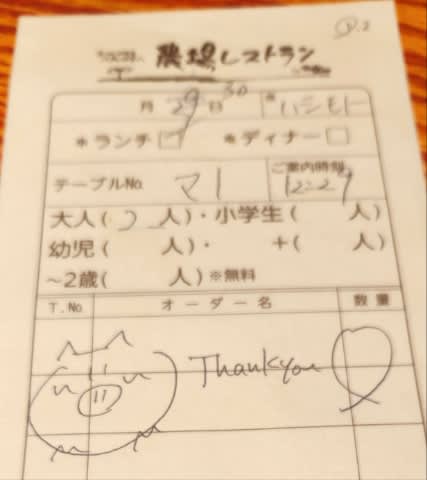 農場レストラン
月 29 日 30 ハシモト
*ランチ □ *ディナー □
ご案内時刻
テーブルNo. マ1 12:27
大人( 2 人)・小学生( 人)
幼児( 人)・ +( 人)
~2歳( 人) ※無料
T.No オーダー名 数量
Thankyou